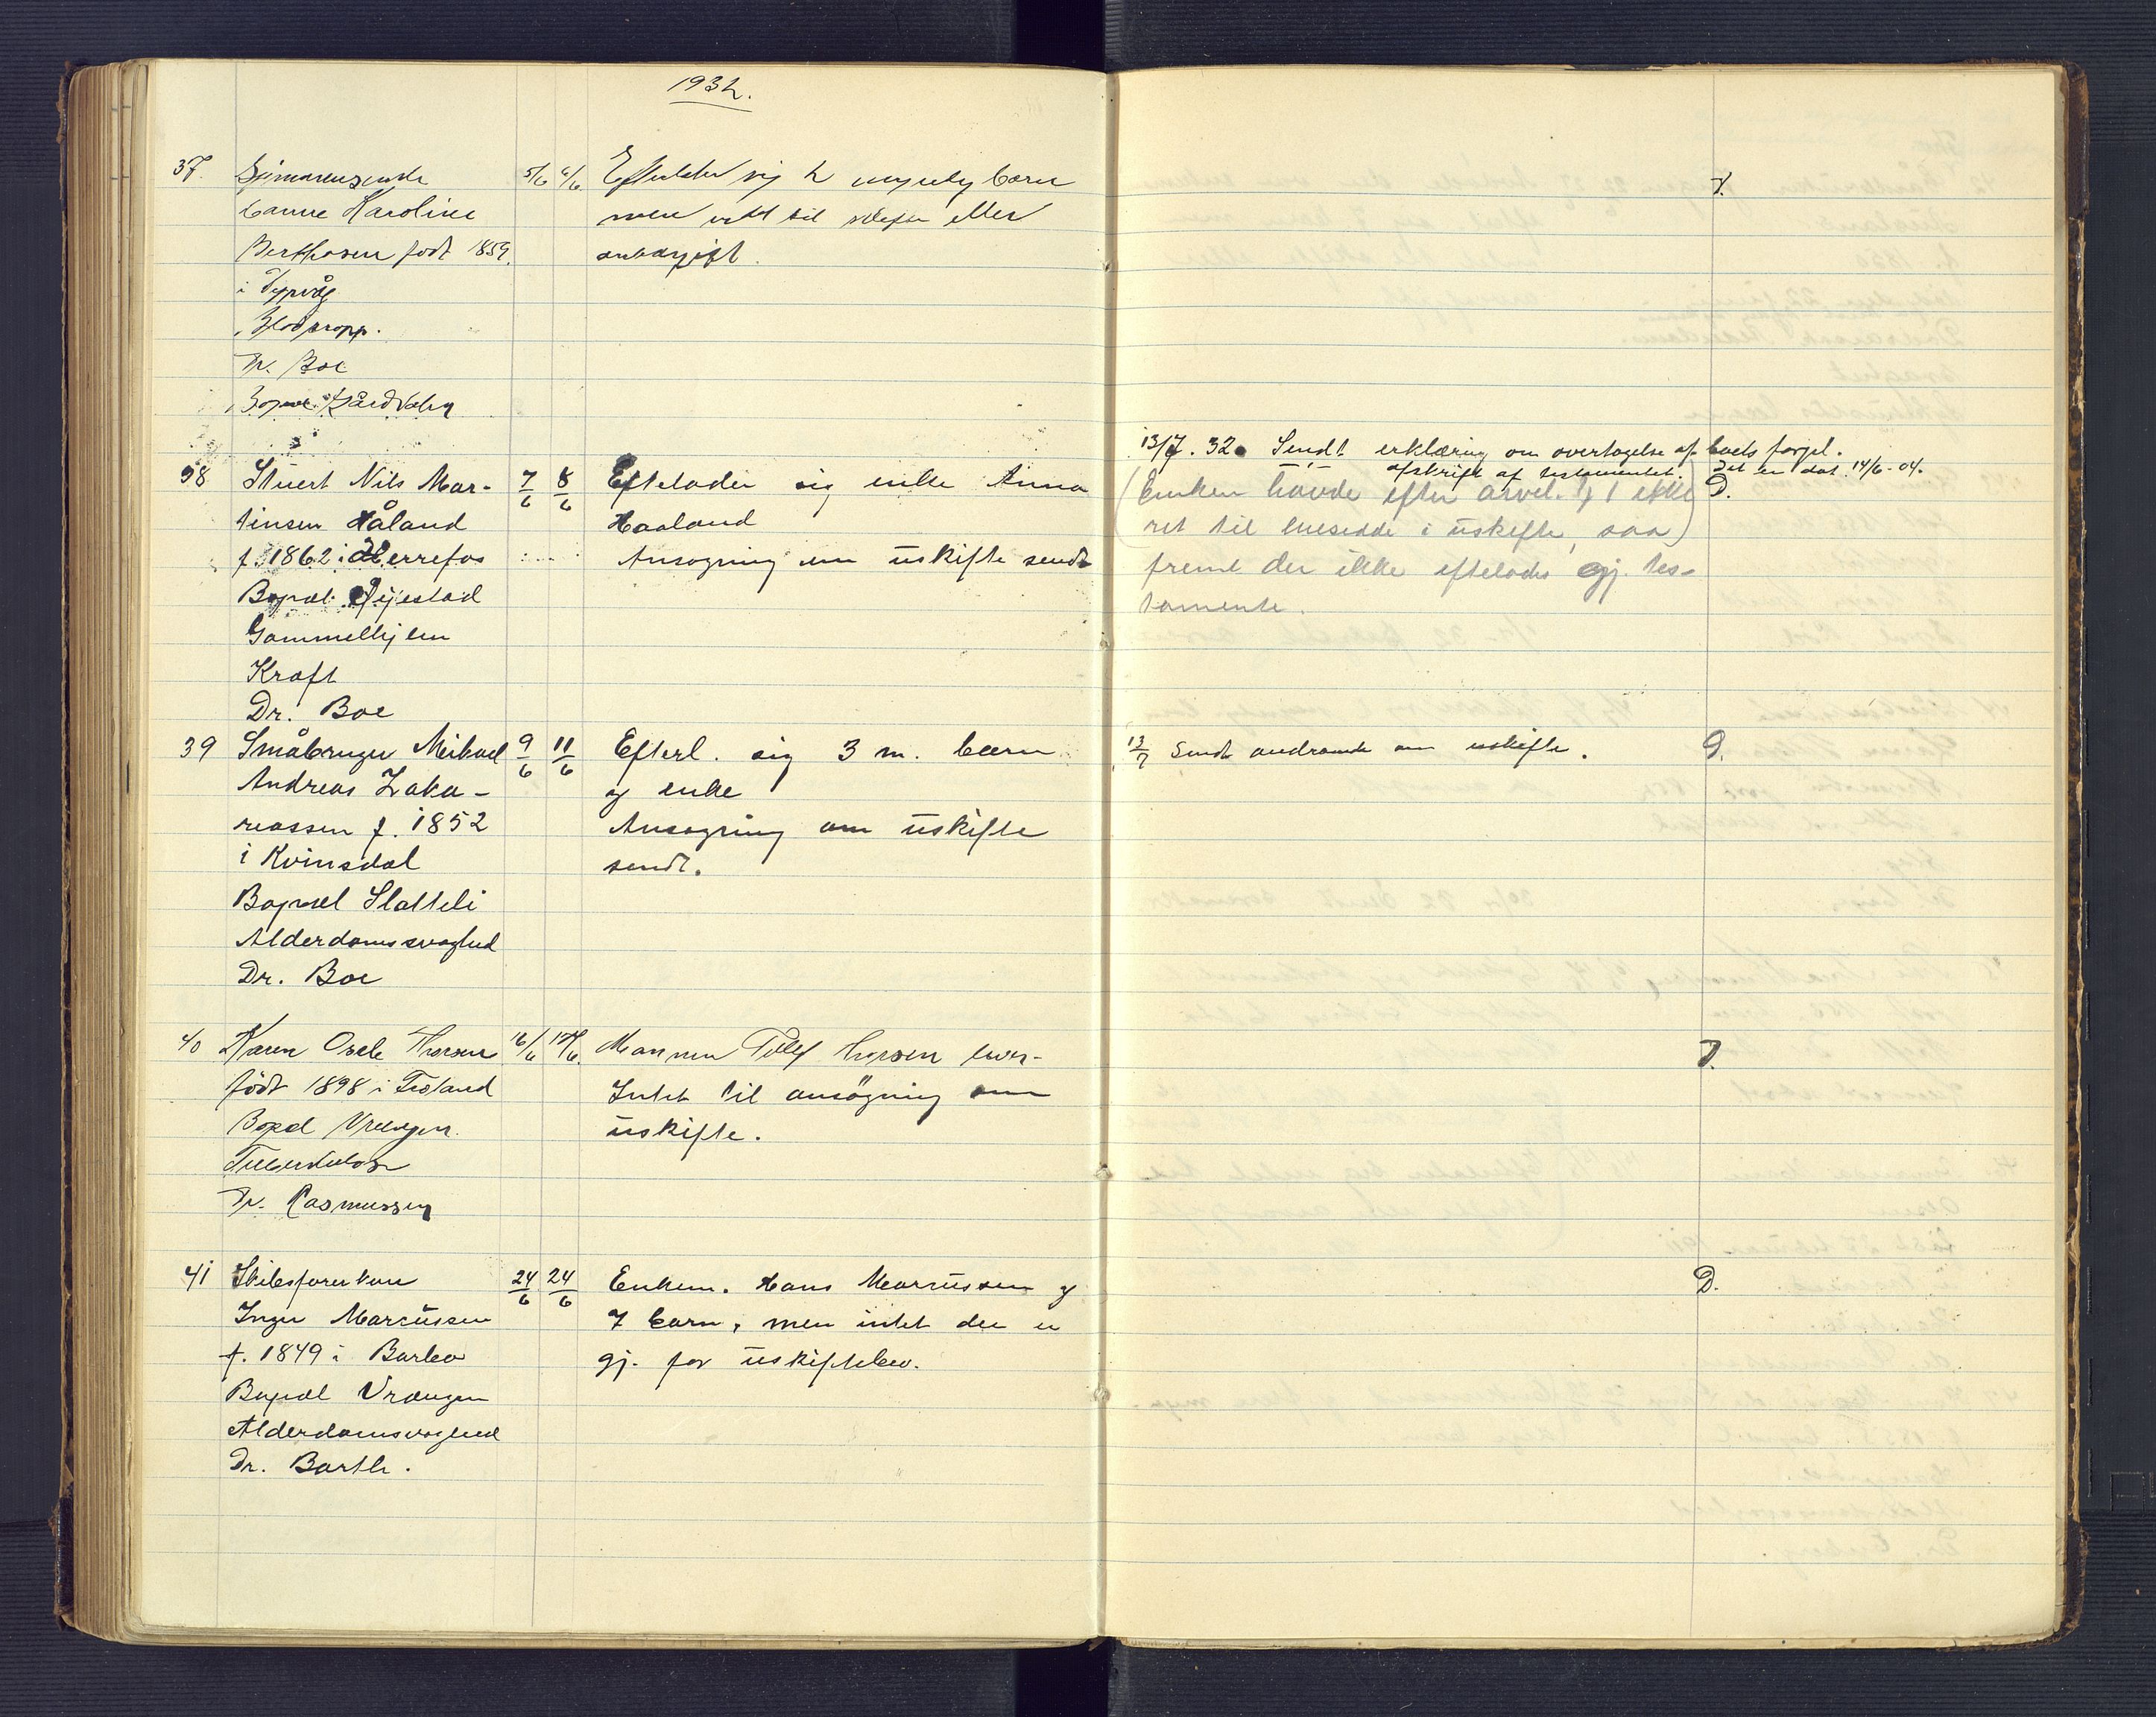 1932.
37.
Karoline
født 1859.
i
Blodpropp.
Dr. Boe
5/6 6/6
Efterlater sig 2 myndig barn
men intet til skifte eller
arvavgift.
38
Stuert Nils Mar-
tinsen Håland
f. 1862 i Herrefos
Bopæl
Gammelhjem
Kræft
Dr. Boe
7/6 8/6
Efterlader sig enke Anna
Haaland
Ansøgning om uskifte sendt
13/7. 32. Sendt erklæring om overtagelse af boets forpl.
afskrift af testamentet. Det er dat. 14/6-04.
(Enken havde efter arvel. § 1 ikke
ret til hensidde i uskifte, saa)
fremt der ikke efterlades gj. tes-
tamente.
D.
39
Småbruger Mikael
Andreas Zaka-
riassen f. 1852
i Kvinsdal
Bopæl Slatteli
Alderdomssvaghed
Dr. Boe
9/6 11/6
Efterl. sig 3 m. barn
og enke
Ansøgning om uskifte
sendt.
13/7 Sendt andragende om uskifte.
D.
40
Karen Thorsen
født 1898 i Froland
Bopæl Vrengen
Tuberkulose
Dr. Rasmussen
16/6 17/6.
Mannen Thorsen lever
Intet til ansögning om
uskifte.
D.
41
Skibsførerkone
Inger Marcussen
f. 1849 i Barbo
Bopæl Vrængen
Alderdomssvaghed
Dr. Barth.
24/6 24/6
Enkem. Hans Marcussen og
7 barn, men intet der er
gj. for uskiftebev.
D.